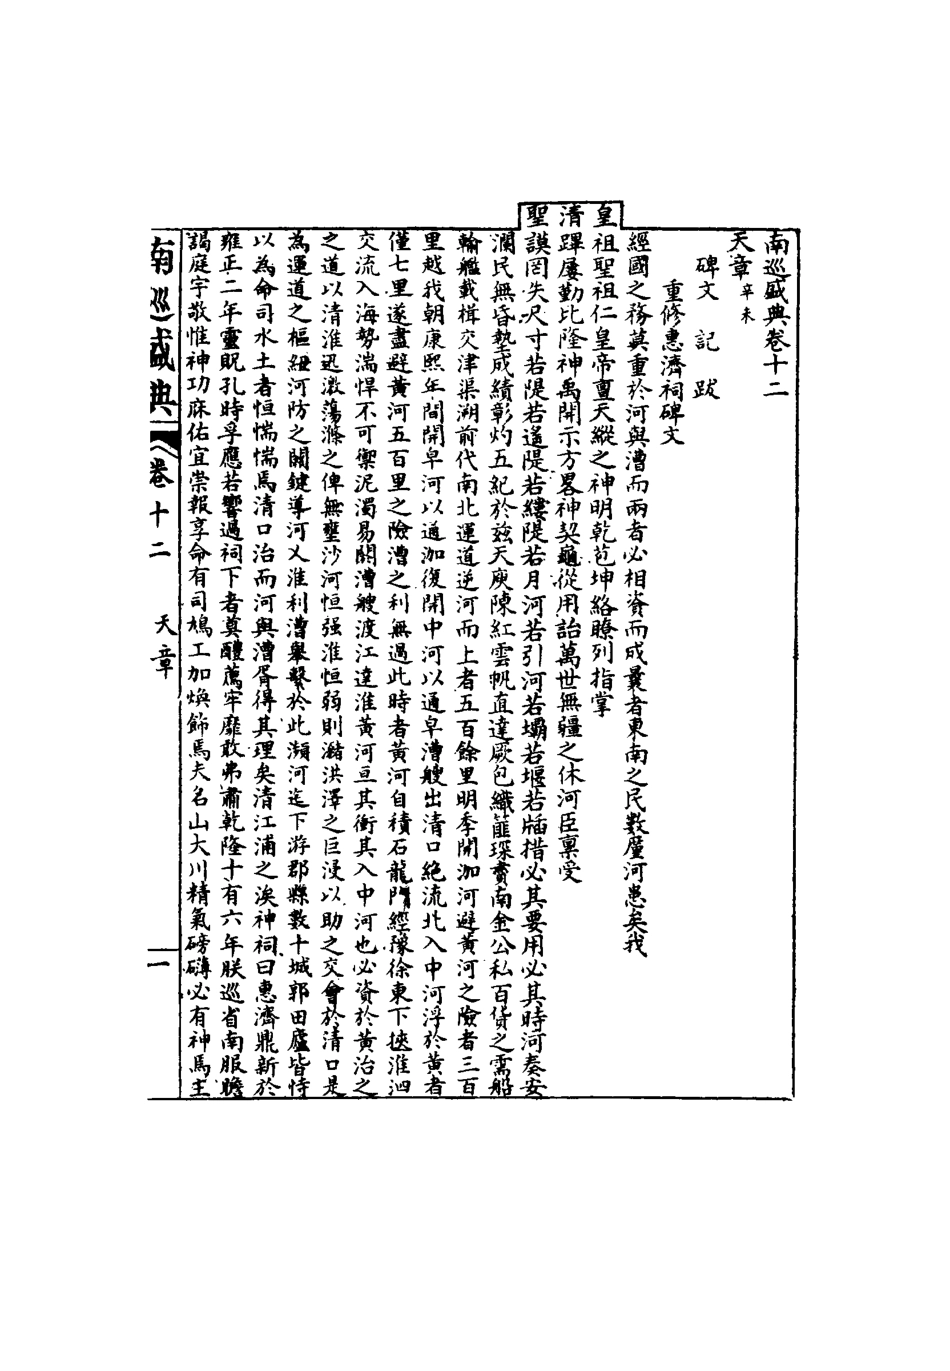 南巡盛典卷十二
天章辛未
碑文 記 跋
重修惠濟祠碑文
經國之務莫重於河與漕而兩者必相資而成曩者東南之民數罹河患矣我
皇祖聖祖仁皇帝亶天縱之神明乾苞坤絡瞭列指掌
清蹕屢勤比隆神禹開示方畧神契龜從用詒萬世無疆之休河臣稟受
聖謨罔失尺寸若隄若遙隄若縷隄若月河若引河若壩若堰若牐措必其要用必其時河奏安
瀾民無昏墊成績彰灼五紀於兹天庾陳紅雲帆直達厥包纖篚琛賮南金公私百貨之需船
輸艦載楫交津渠溯前代南北運道逆河而上者五百餘里明季開泇河避黄河之險者三百
里越我朝康熙年間開皁河以通泇復開中河以通皁漕艘出清口絶流北入中河浮於黄者
僅七里遂盡避黄河五百里之險漕之利無過此時者黄河自積石龍門經豫徐東下挾淮泗
交流入海勢湍悍不可禦泥濁易閼漕艘渡江達淮黄河亘其衝其入中河也必資於黄治之
之道以清淮迅激蕩滌之俾無壅沙河恒强淮恒弱則瀦洪澤之巨浸以助之交會於清口是
為運道之樞紐河防之關鍵導河乂淮利漕舉繫於此瀕河迄下游郡縣數十城郭田廬皆恃
以為命司水土者恒惴惴焉清口治而河與漕胥得其理矣清江浦之涘神祠曰惠濟鼎新於
雍正二年靈貺孔時孚應若響過祠下者奠醴薦牢靡敢弗肅乾隆十有六年朕巡省南服瞻
謁庭宇敬惟神功庥佑宜崇報享命有司鳩工加煥飾焉夫名山大川精氣磅礴必有神焉主
南巡盛典 卷十二 天章 一